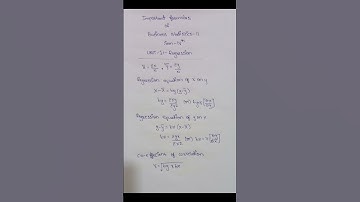 Important formulas
of
Business statistics-II
Sem-IV
Unit-II- Regression
x̄ = Σx/n , ȳ = Σy/n
Regression equation of x on y
x-x̄ = by (y-ȳ)
by = Σxy/Σy² (or) by = r
Regression equation of y on x
y-ȳ = bx (x-x̄)
bx = Σxy/Σx² (or) bx = r
Co-efficients of correlation
r = √by x bx